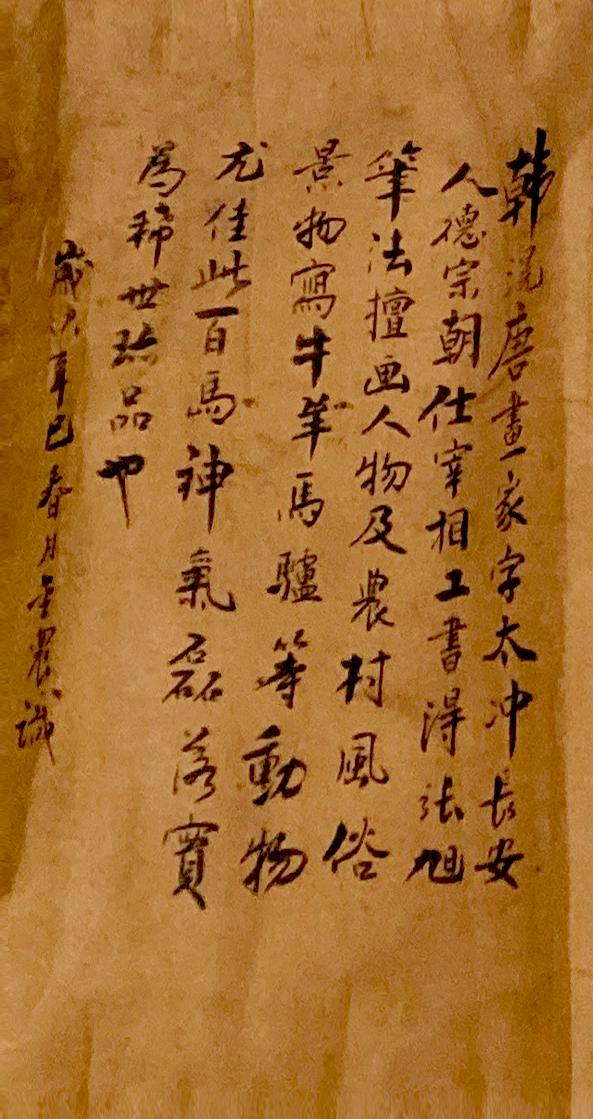 韩滉唐畫家字太冲長安
人德宗朝仕宰相工書得张旭
筆法擅画人物及農村風俗
景物寫牛羊馬驢等動物
尤佳此百馬神氣磊落實
為稀世珎品也
歲次辛巳春月金農識